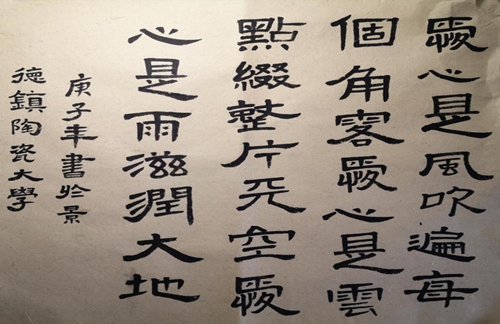 愛心是風吹遍每
個角客愛心是雲
點綴整片天空愛
心是雨滋潤大地
庚子年書於景
德鎮陶瓷大學